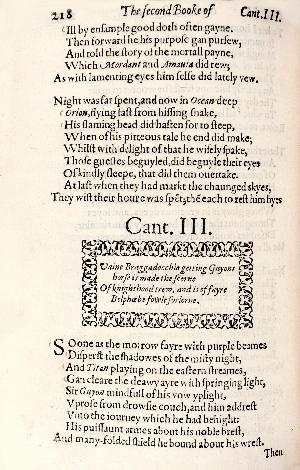 218 The second Booke of Cant. III.
Ill by ensample good doth often gayne.
Then forward he his purpose gan pursew,
And told the story of the mortall payne,
Which Mordant and Amauia did rew;
As with lamenting eyes him selfe did lately vew.
Night was far spent, and now in Ocean deep
Orion, flying fast from hissing snake,
His flaming head did hasten for to steep,
When of his pitteous tale he end did make;
Whilst with delight of that he wisely spake,
Those guestes beguyled, did beguyle their eyes
Of kindly sleepe, that did them ouertake.
At last when they had markt the chaunged skyes,
They wist their houre was spẽt; thẽ each to rest him hyes
Cant. III.
Vaine Braggadocchio getting Guyons
horse is made the scorne
Of knighthood trew, and is of fayre
Belphœbe fowle forlorne.
SOone as the morrow fayre with purple beames
Disperst the shadowes of the misty night,
And Titan playing on the eastern streames,
Gan cleare the deawy ayre with springing light,
Sir Guyon mindfull of his vow yplight,
Vprose from drowsie couch, and him addrest
Vnto the iourney which he had behight:
His puissaunt armes about his noble brest,
And many-folded shield he bound about his wrest.
Then